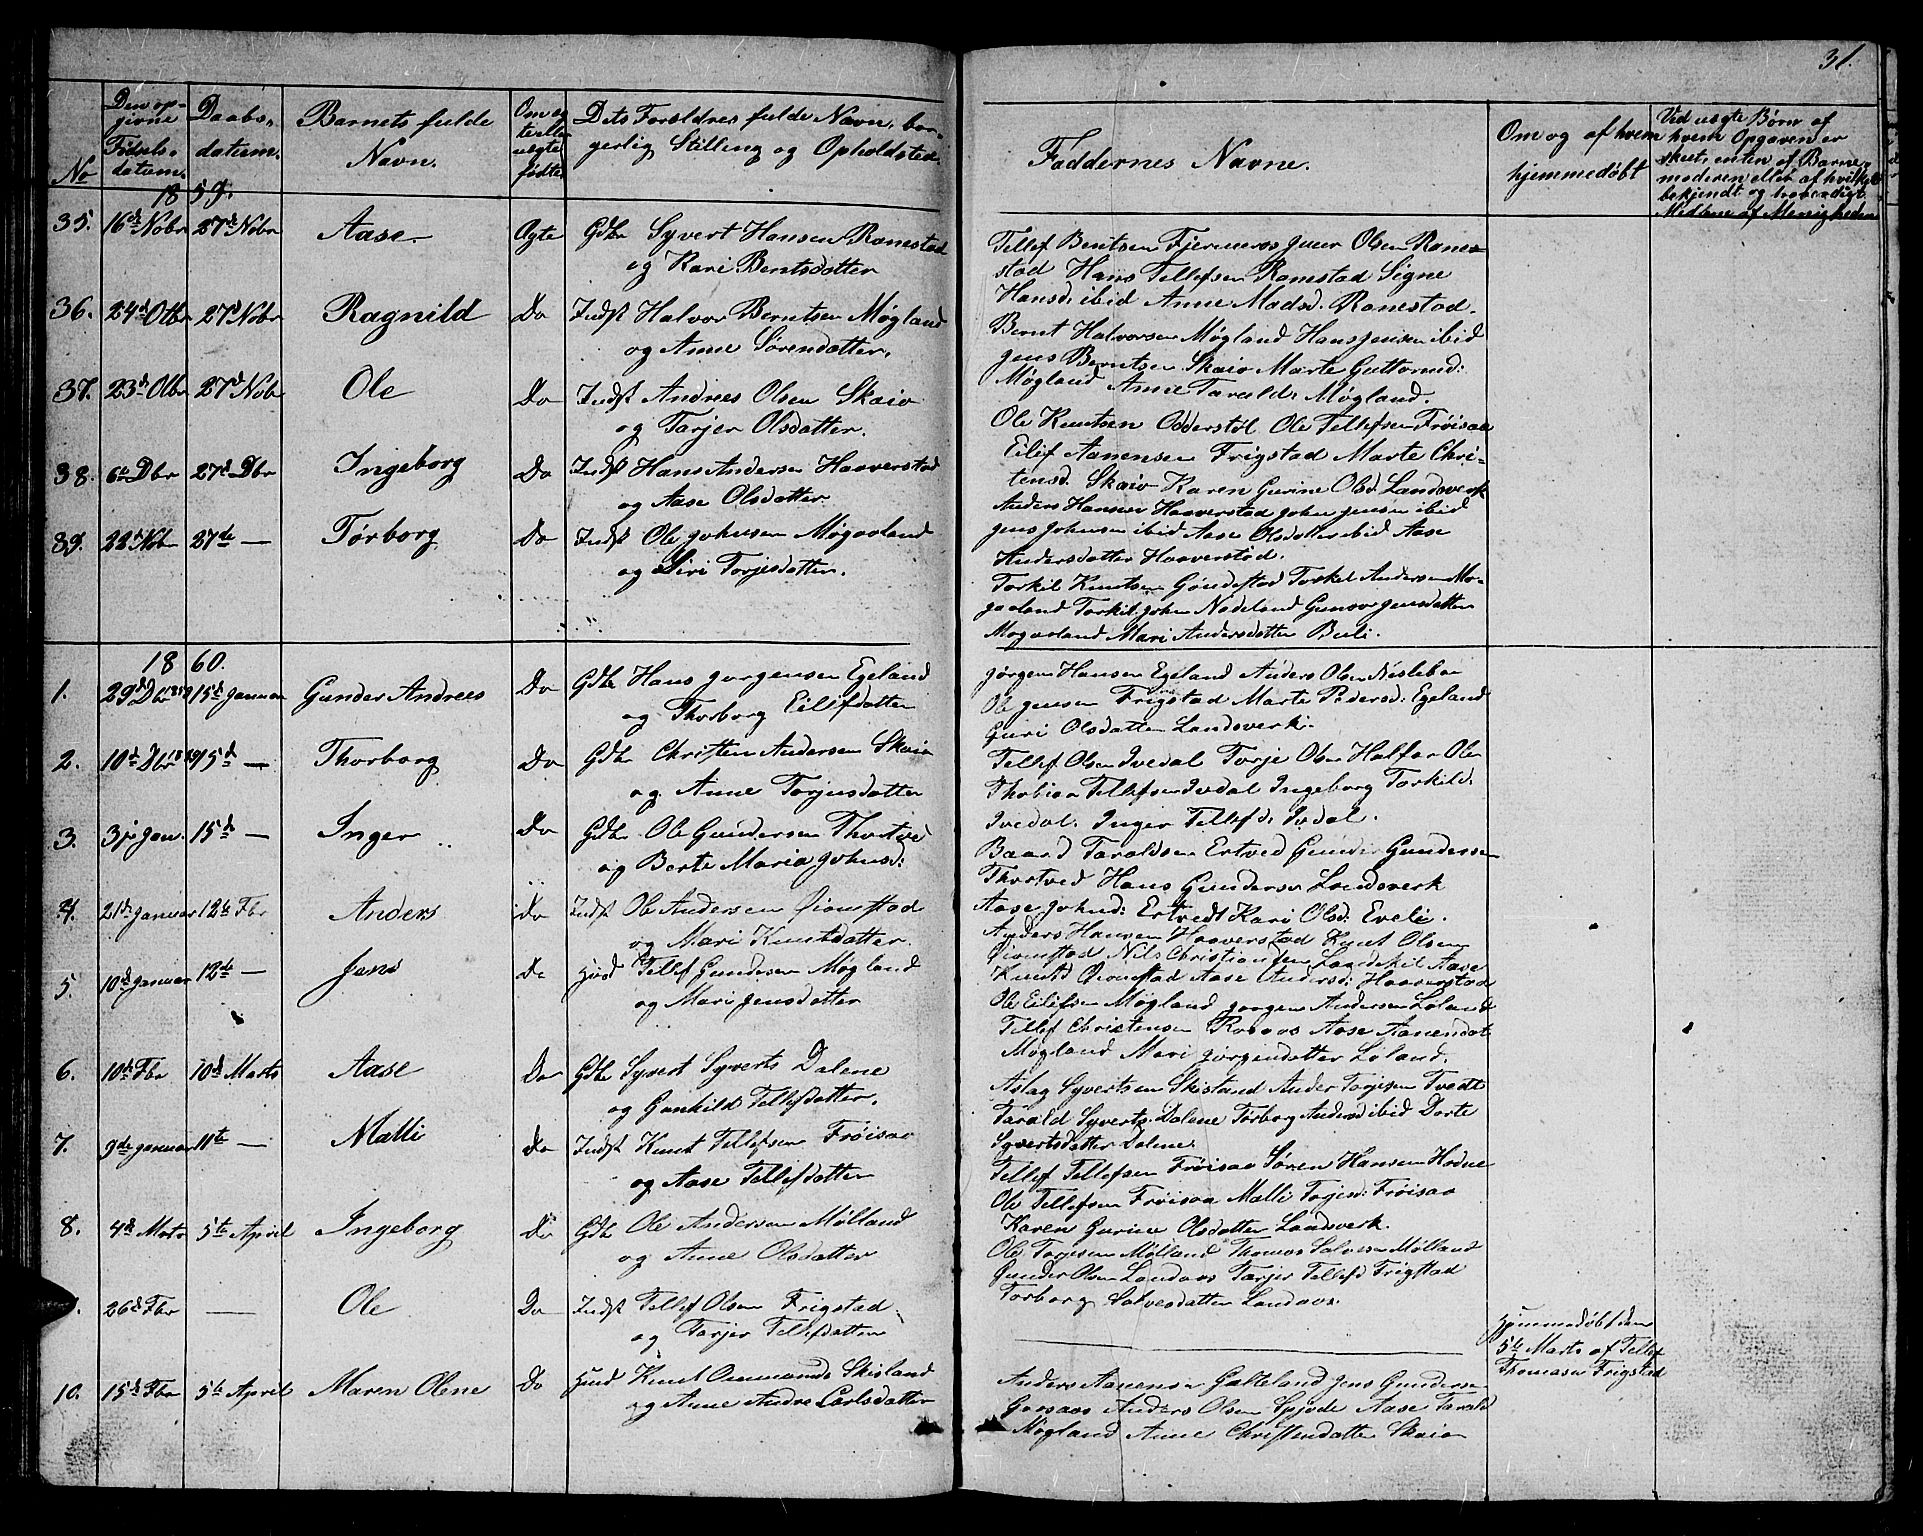 31.
No
Den op-
givne
Fødsels-
datum.
Daabs-
datum.
Barnets fulde
Navn.
Om eg
te eller
uegte
fødte
Dets Forældres fulde Navn, bor-
gerlig Stilling og Opholdsted
Faddernes Navne.
Om og af hvem
hjemmedøbt
Ved uegte Børn af
hvem Opgaven er
skeet, enten af Barne
moderen eller af hvilke
bekjendt og troværdigt
Medlem af Menigheden
1859.
35. 16de Nobr 27de Nobr Aase Egte Gdbr Syvert Hansen Ramstad
og Kari Berntsdatter
Tellef Bentsen Fjermeros Gunr Olsen Ram-
stad Hans Tellefsen Ramstad Signe
Hansd. ibid Anne Madsd. Ramstad.
36. 24d Otbr 27d Nobr Ragnild Do Indst Halvor Berntsen Møgland
og Anne Sørensdatter.
Bernt Halvorsen Møgland Hans Jensen ibid
Jens Berntsen Skaio Marte Guttormd:
Møgland Anne Tarald: Møgland.
37. 23d Otbr 27d Nobr Ole Do Indst Andrees Olsen Skaio
og Tarjer Olsdatter.
Ole Knutsen Odderstøl Ole Tellefsen Frøisaa
Eilif Aanensen Frigstad Marte Chri-
tensd. Skaio Karen Gurine Olsd Landsverk
38. 6te Dbr 27d Dbr Ingeborg Do Indst Hans Andersen Haaverstad
og Aase Olsdatter
Anders Hansen Haaverstad John Jensen ibid
Jens Johnsen ibid Aase Olsdatter ibid Aase
Andersdatter Haaverstad.
39. 22d Nobr 27de — Tørborg Do Indst Ole Johnsen Møgaaland
og Siri Torjesdatter.
Torkil Knutsen Gondestad Torkel Andersen Mø-
gaaland Torkil John Nodeland Gunvor Jensdatter
Møgaaland Mari Andersdatter Buli.
1860.
1. 29d Dbr 1859 15d Januar Gunder Andrees Do Gdbr Hans Jørgensen Egeland
og Thorborg Eilifdatter
Jørgen Hansen Egeland Anders Olsen
Ole Jensen Frigstad Marte Pedersd: Egeland
Guri Olsdatter Landsverk.
2. 10d Dbr 1859 15d — Thorborg Do Gdbr Christen Andersen Skaio
og Anne Torjusdatter
Tellef Olsen Ivedal Torje Olsen Ole
Thobias Tellefsen Ivedal Ingeborg Torkild:
Ivedal. Inger Tellefd. Ivdal.
3. 3je Jan. 15d — Inger Do Gdbr Ole Gundersen Thortved
og Berte Maria Johnsd:
Baard Taraldsen Ertved Gunder Gundersen
Thortved Hans Gundersen Landsverk
Aase Johnd: Ertvedt Kari Olsd: Eveli.
4. 21de Januar 12te Fbr Anders Do Indst Ole Andersen Øiomstad
og Mari Knutsdatter.
Anders Hansen Haaverstad Knut Olsen
Øiomstad Nils Christiansen Aase
Knutd Øiomstad Aase Andersd: Haaverstad
5. 10d Januar 12te — Jens Do Husd Tellef Gundersen Møgland
og Mari Jensdatter
Ole Eilifsen Møgland Jørgen Andersen Løland
Tellef Christensen Rosaas Aase Aanendat
Møgland Mari Jørgensdatter Løland.
6. 10de Fbr 10d Marts Aase Do Gdbr Syvert Syverts Dalene
og Gunhild Tellefsdatter.
Aslag Syvertsen Skisland Ander Torjesen Tvedt
Tarald Syverts. Dalene Tørborg Andersd ibid Dorte
Syvertsdatter Dalene.
7. 9de Januar 11te — Malli Do Indst Knut Tellefsen Frøisaa
og Aase Tellefsdatter
Tellef Tellefsen Frøisaa Søren Hansen Hodne
Ole Tellefsen Frøisaa Malli Tojen: Frøisaa
Karen Gurine Olsdatter Landsverk.
8. 4de Marts 5te April Ingeborg Do Gdbr Ole Andersen Mølland
og Anne Olsdatter
Ole Torjesen Mølland Thomas Salvesen Mølland
Gunder Olsen Landaas Tarjer Tellefd Frigstad
Torborg Salvesdatter Landaas.
26d Fbr — Ole Do Indst Tellef Olsen Frigstad
og Tarjer Tellefdatter
Hjemmedøbt den
5te Marts af Tellef
Thomasen Frigstad
10. 15d Fbr 5te April Maren Olene Do Husd Knut Ommunds Skisland
og Anne Andrea Carlsdatter
Anders Aanensen Galteland Jens Gundersen
Gaasaas Anders Olsen Spjode Aase Tarald
Møgland Anne Christensdatter Skaio